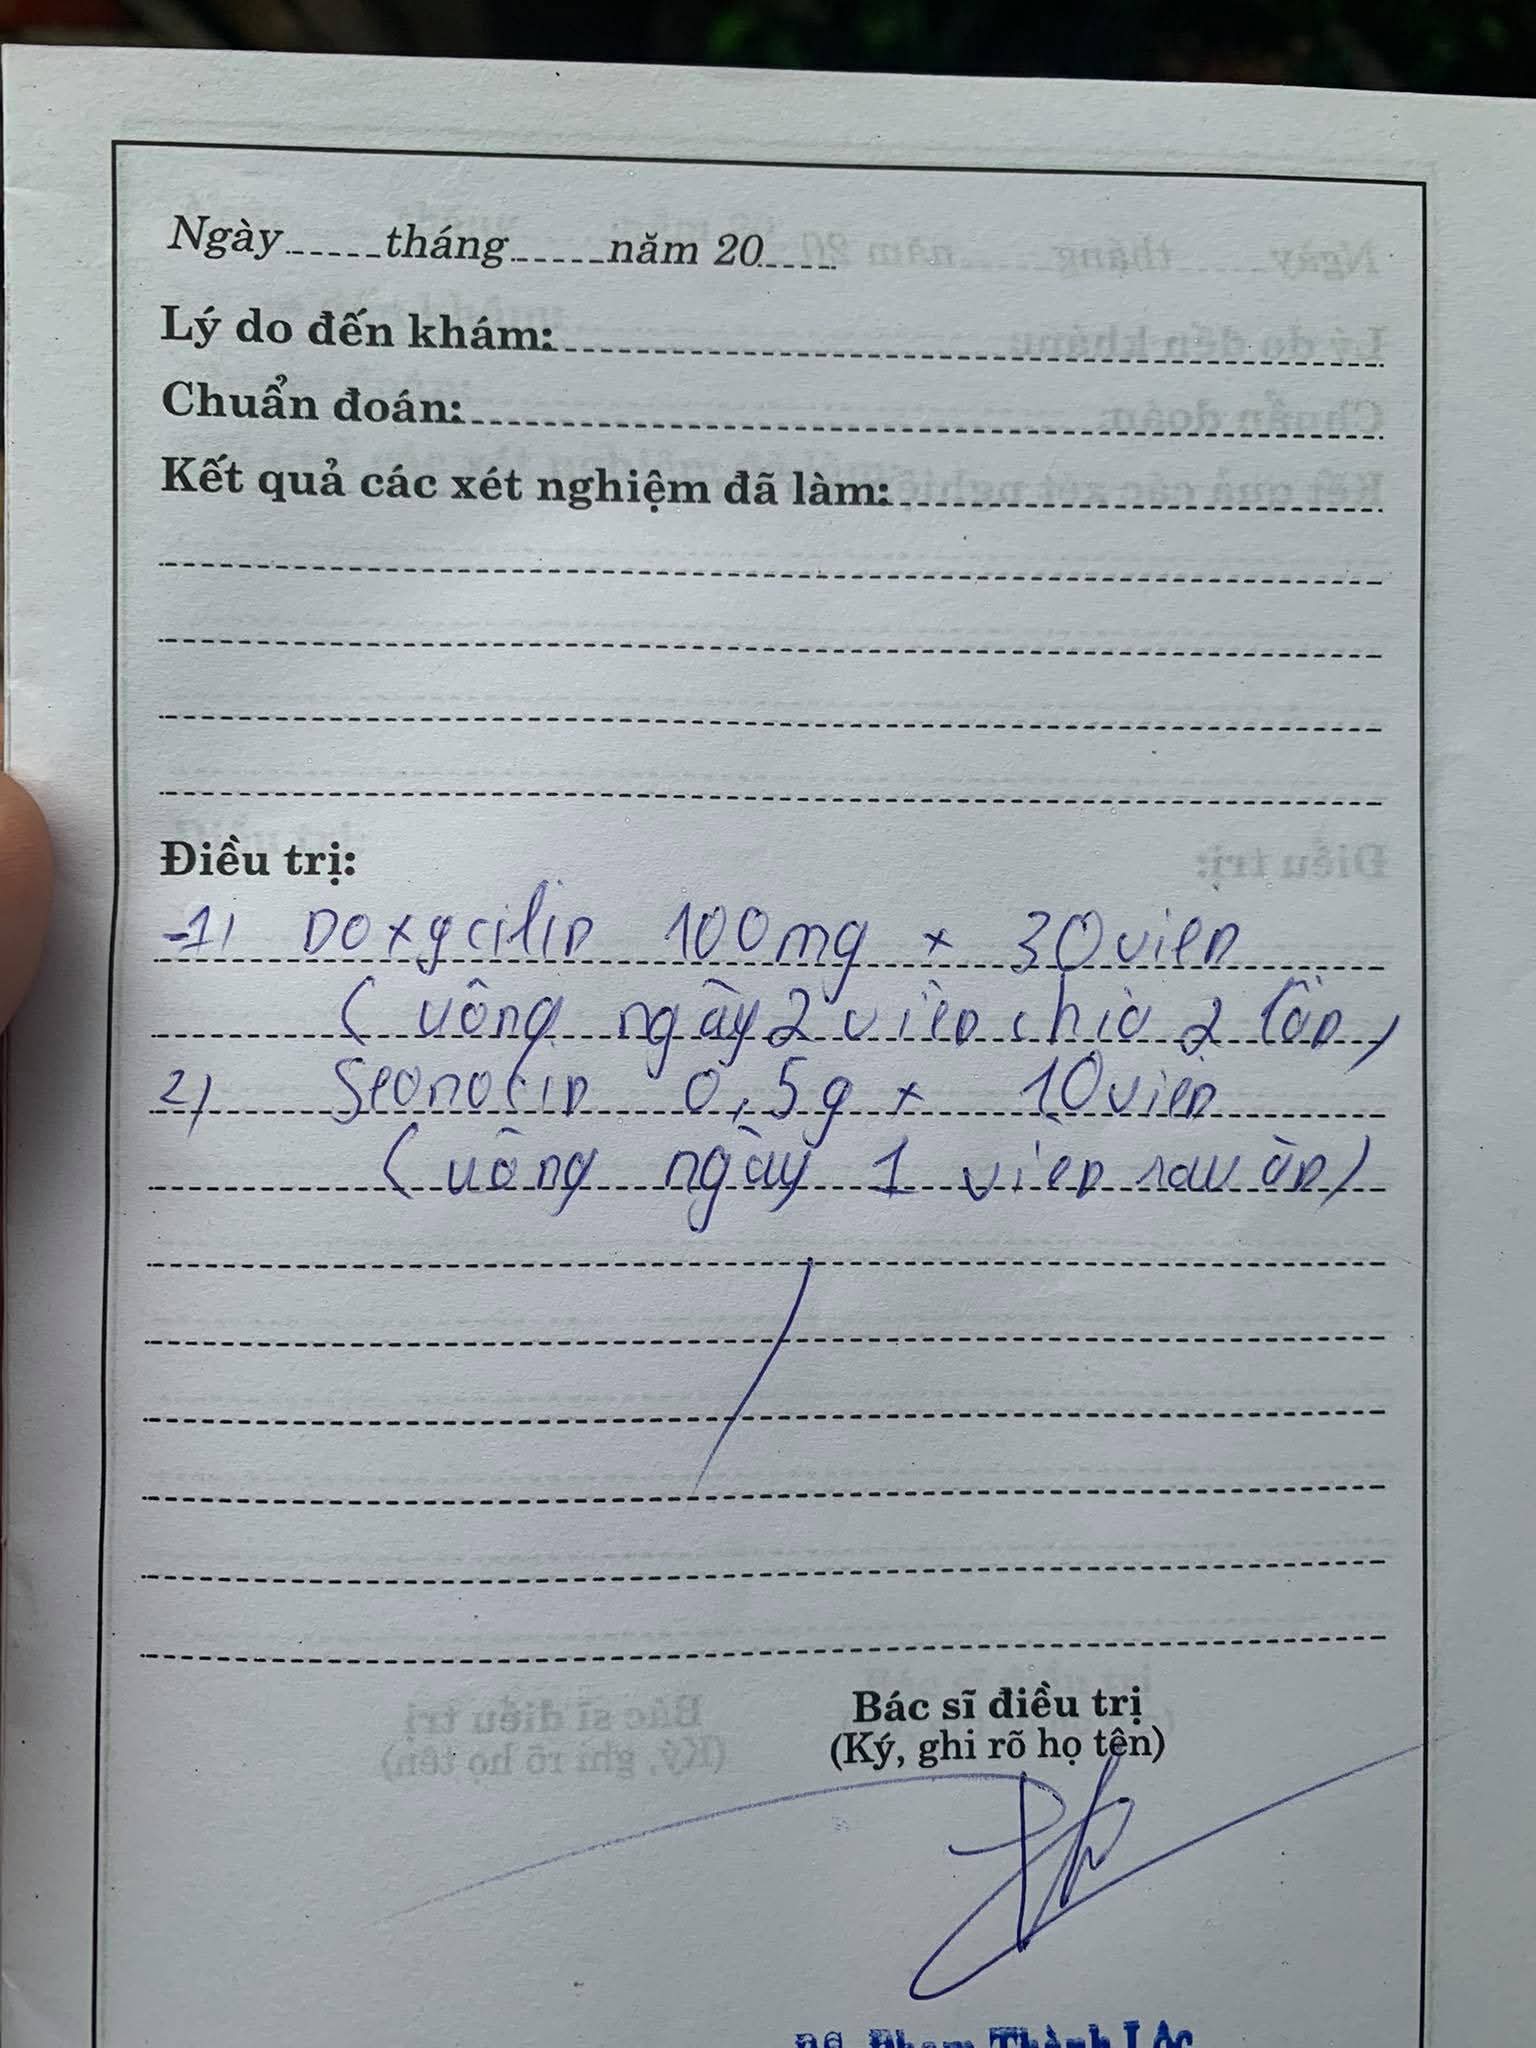 Ngày......tháng......năm 20.....
Lý do đến khám:
Chuẩn đoán:
Kết quả các xét nghiệm đã làm:
Điều trị:
1) Doxycilin 100mg x 30 viên
(uống ngày 2 viên chia 2 lần)
2) 0,5g x 10 viên
(uống ngày 1 viên sau ăn)
Bác sĩ điều trị
(Ký, ghi rõ họ tên)
BS. Phạm Thành Lộc